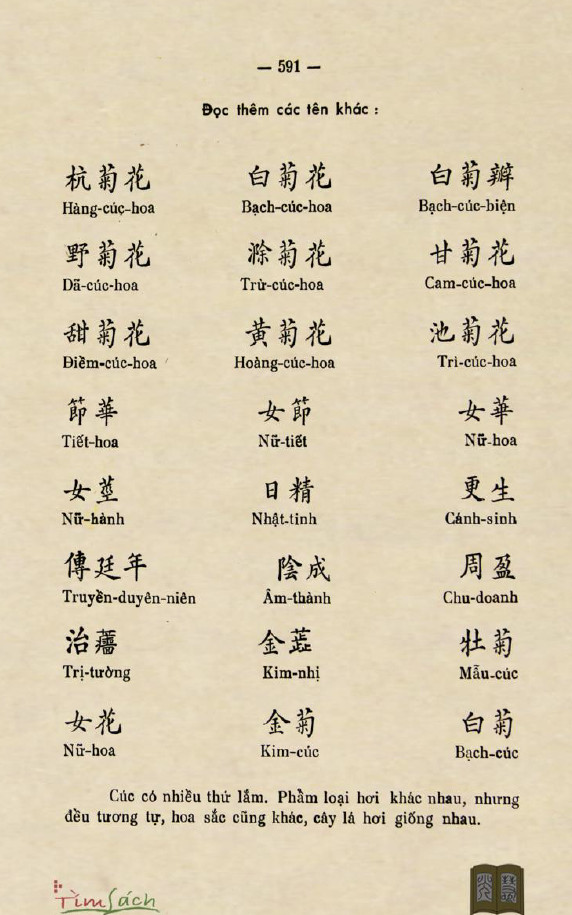 — 591 —
Đọc thêm các tên khác :
杭菊花 白菊花 白菊辧
Hàng-cúc-hoa Bạch-cúc-hoa Bạch-cúc-biện
野菊花 滁菊花 甘菊花
Dã-cúc-hoa Trừ-cúc-hoa Cam-cúc-hoa
甜菊花 黃菊花 池菊花
Điềm-cúc-hoa Hoàng-cúc-hoa Trì-cúc-hoa
節華 女節 女華
Tiết-hoa Nữ-tiết Nữ-hoa
女莖 日精 更生
Nữ-hành Nhật-tinh Cánh-sinh
傳廷年 陰成 周盈
Truyền-duyên-niên Âm-thành Chu-doanh
治蘠 金 牡菊
Trị-tường Kim-nhị Mẫu-cúc
女花 金菊 白菊
Nữ-hoa Kim-cúc Bạch-cúc
Cúc có nhiều thứ lắm. Phẩm loại hơi khác nhau, nhưng
đều tương tự, hoa sắc cũng khác, cây lá hơi giống nhau.
TimSách